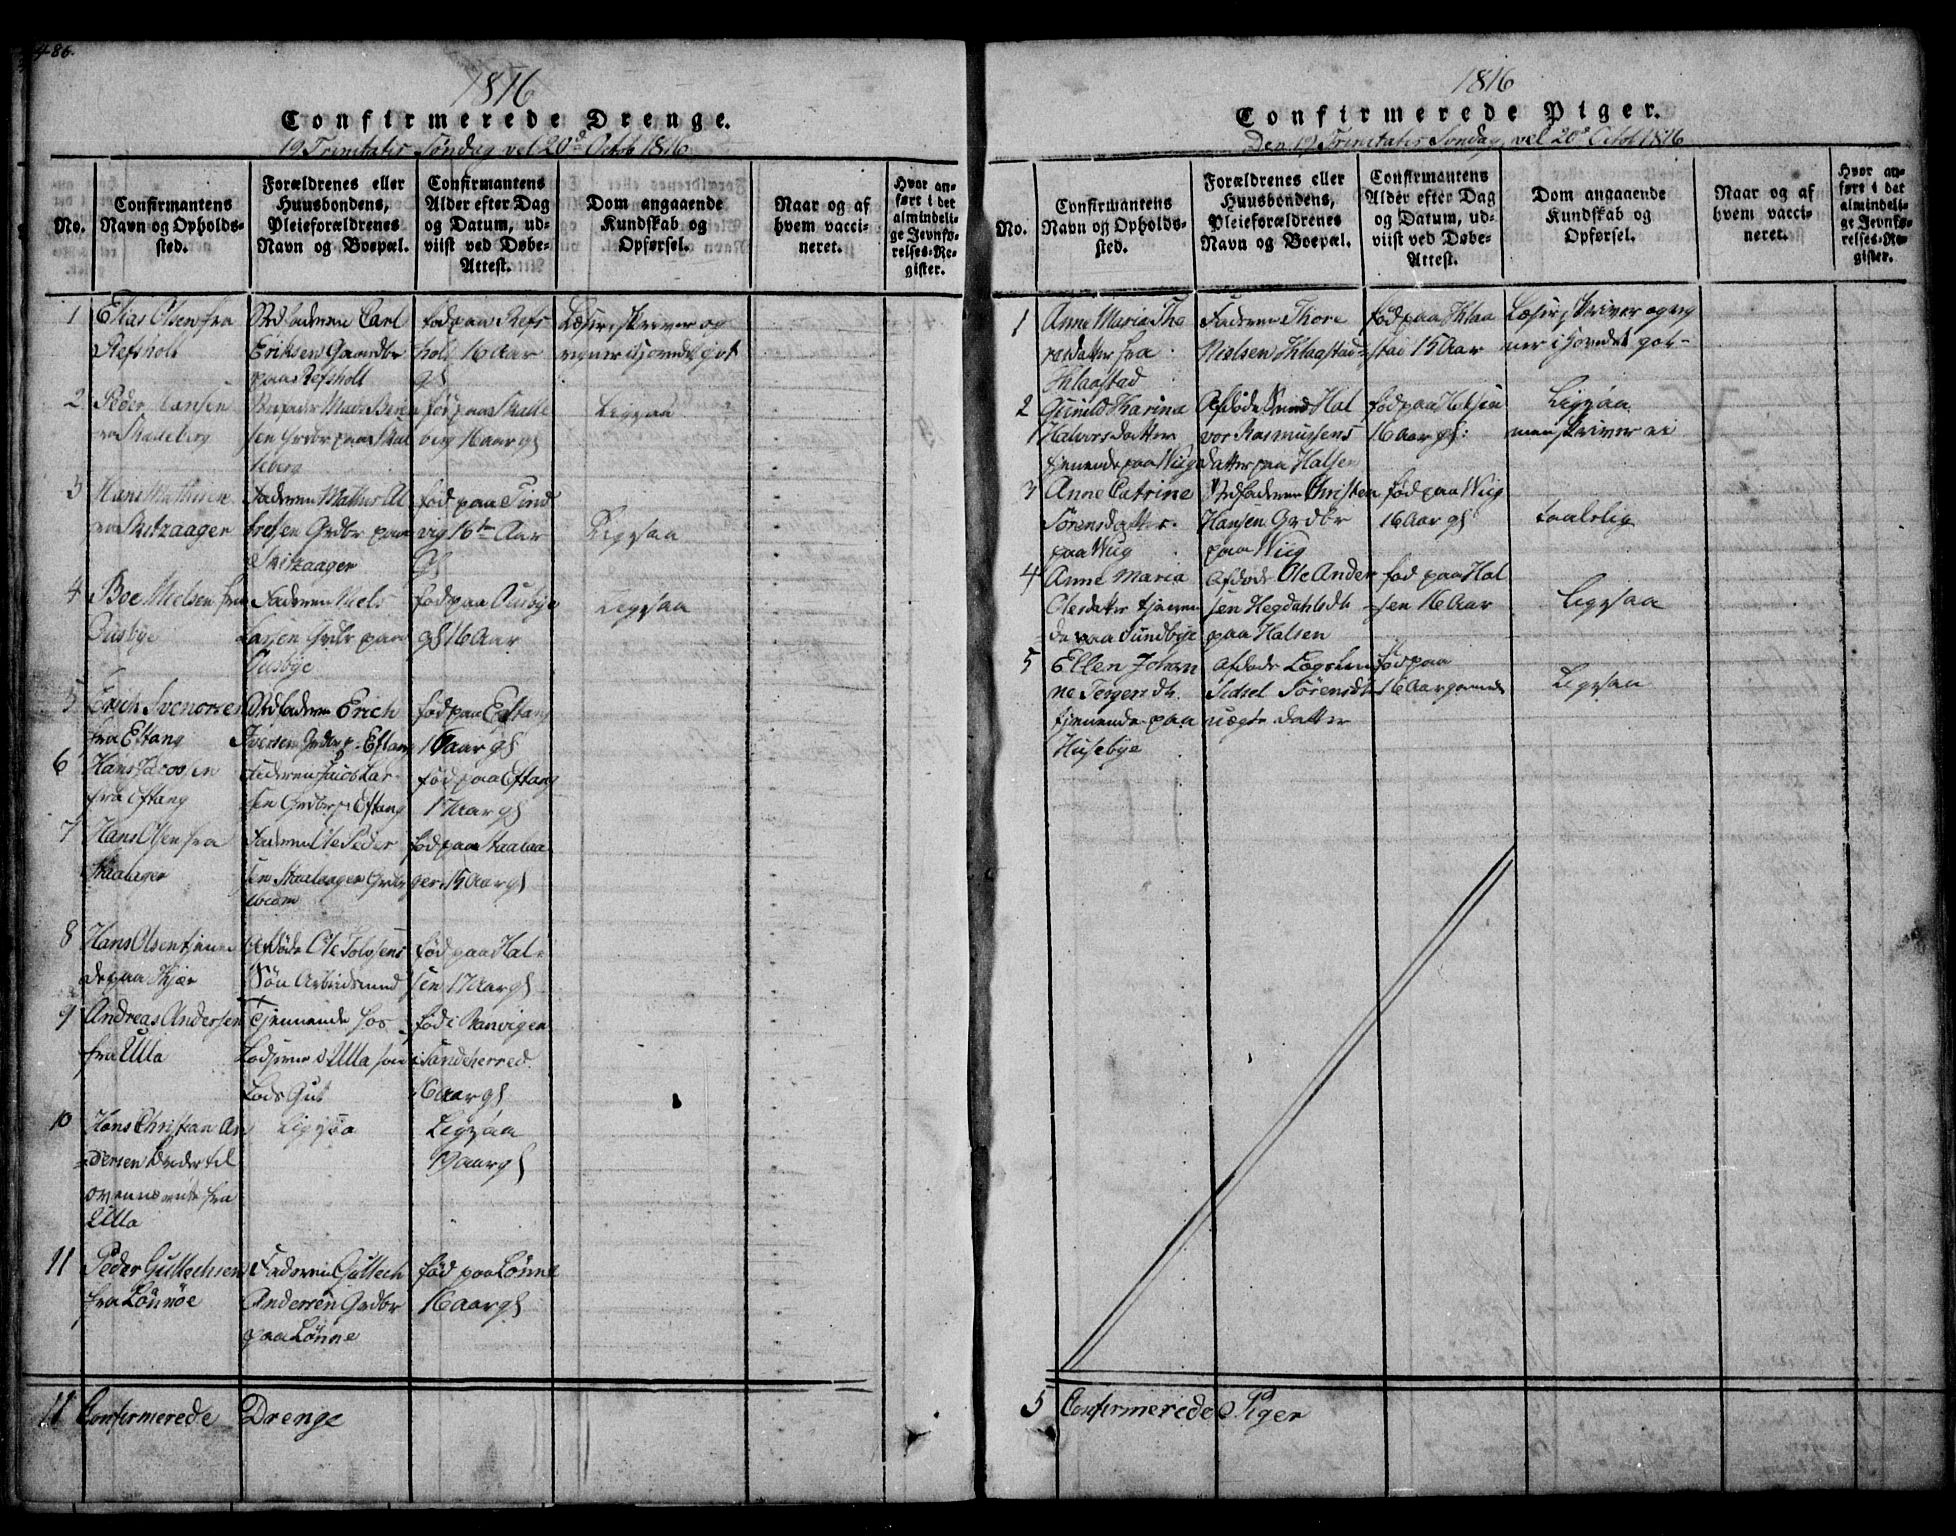 486.
1816
Confirmerede Drenge.
19 Trinitatis Søndag vel 20d Octob 1816
No.
Confirmantens
Navn og Opholds-
sted.
Forældrenes eller
Huusbondens,
Pleieforældrenes
Navn og Boepæl.
Confirmantens
Alder efter Dag
og Datum, ud-
viist ved Døbe-
Attest.
Dom angaaende
Kundskab og
Opførsel.
Naar og af
hvem vacci-
neret.
Hvor an-
ført i det
almindeli-
ge Jevnfø-
relses-Re-
gister.
1
Elias Olsen fra
Refsholt
Carl
Eriksen Gaardbr
paa Refsholt
fød paa Refs
holt 16 Aar
gl
Læser, skriver og
regner i hovedet got
2
Peder Hansen
fra Skaleberg
sen Grdbr paa Skal
leberg
fød paa Skalle
berg 16 aar gl
Ligesaa
3
Hans Mathisen
fra Skitzaager
Faderen Mathis Al
fresen Grdbr paa
Skitzaager
fød paa Tind
vig 16ten Aar
gl
Ligesaa
4
Boe Nielsen fra
Ousbye
Faderen Niels
Larsen Grdbr paa
Ousbye
fød paa Ousbye
gl 16 Aar
Ligesaa
5
Erich Svensen
fra Eftang
Stedfaderen Erich
Iversen Grdbr p. Eftang
fød paa Eftang
16 aar gl
6
Hans Jacobsen
fra Eftang
Faderen Jacob Lar-
sen Grdbr p. Eftang
fød paa Eftang
17 Aar gl
7
Hans Olsen fra
Staalager
Faderen Ole Peder
sen Staalaager Grdbr
fød paa Staalaa
ger 15 Aar gl
8
Hans Olsen tjenen
de paa Kjær
Afdøde Ole
Søn Arbeidsmand
fød paa Hal-
sen 17 Aar gl
9
Andreas Andersen
fra Ulla
Tjennende hos
Lodserne i Ulla som
Lods Gut
fød i Ranvigen
i Sandeherred
16 aar gl
10
Hans Christian An
dersen Broder til
ovennævnte fra
Ulla
Ligesaa
Ligesaa
aar gl
11
Peder Gullechsen
fra Lønnøe
Faderen Gullech
Andersen Grdbr
paa Lønne
fød paa Lønne
16 aar gl
11 Confirmerede Drenge
1816
Confirmerede Piger.
Den 19 Trinitatis Søndag, vel 20d Octob 1816
No.
Confirmantens
Navn og Opholds-
sted.
Forældrenes eller
Huusbondens,
Pleieforældrenes
Navn og Boepæl.
Confirmantens
Alder efter Dag
og Datum, ud-
viist ved Døbe-
Attest.
Dom angaaende
Kundskab og
Opførsel.
Naar og af
hvem vacci-
neret.
Hvor an-
ført i det
almindeli-
ge Jevnfø-
relses-Re-
gister.
1
Anne Maria Tho
resdatter fra
Klaastad
Faderen Thore
Nielsen Klaastad
fød paa Klaa
stad 15 Aar
Læser, skriver og reg
ner i hovedet got-
2
Gunild Karina
Halvorsdatter
tjenende paa Wiig
Afdøde Hal
vor Rasmussens
datter paa Halsen
fød paa Halsen
16 Aar gl:
Ligesaa
men skriver ei
3
Anne Catrine
Sørensdatter
paa Wiig
Stedfaderen Christen
Hansen Grdbr
paa Wiig
fød paa Wiig
16 Aar gl
taalelig
4
Anne Maria
Olesdatter tjenen
de paa Sundbye
Afdøde Ole Ander
sen Hegdahls dt.
paa Halsen
fød paa Hal
sen 16 Aar
Ligesaa
5
Ellen Johan
ne Jørgensdt.
tjenende paa
Husebye
Afdøde
Sidsel Sørensdt.
uægte datter
fød paa
16 Aar gamle
Ligesaa
5 Confirmerede Piger